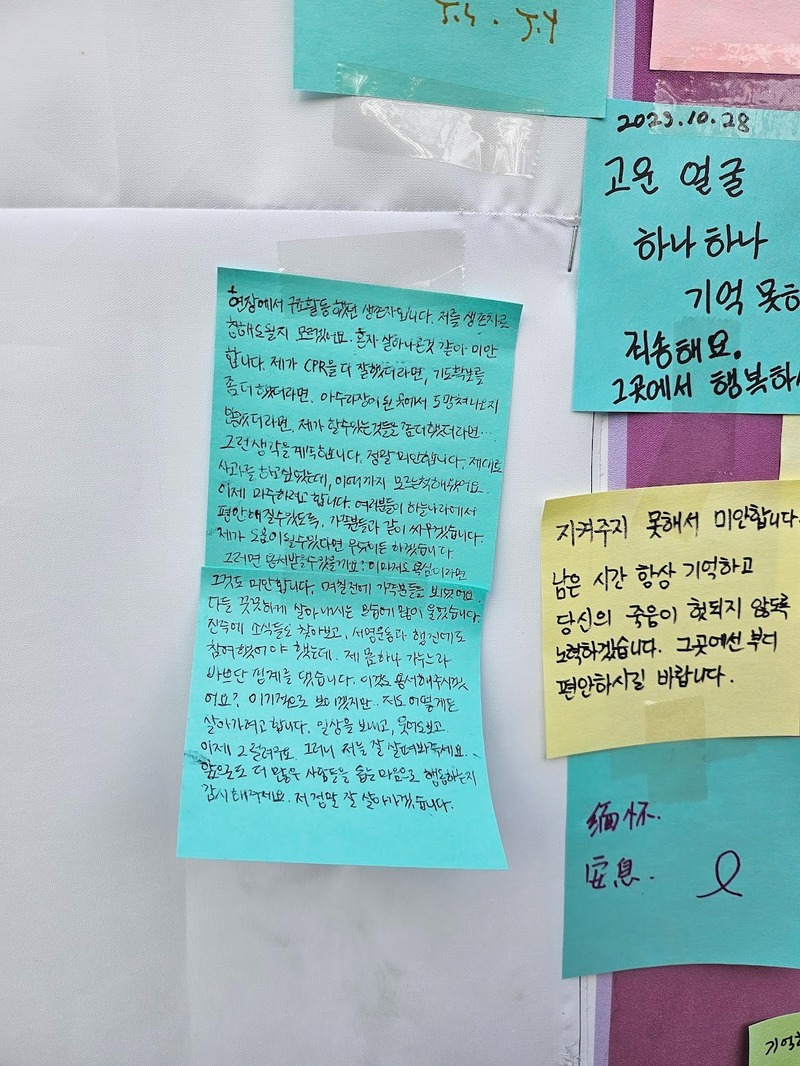 J.S. J.Y
현장에서 구조활동 했던 생존자입니다. 저를 생존자로
칭해도될지 모르겠어요. 혼자 살아나온것 같아 미안
합니다. 제가 CPR을 더 잘했더라면, 기도확보를
좀 더 했더라면. 아수라장이 된 곳에서 도망쳐나오지
않았더라면, 제가 할수있는것들을 좀더했더라면...
그런 생각을 계속합니다. 정말 미안합니다. 제대로
사과를 하고싶었는데, 이때까지 모르는척해왔어요.
이제 마주하려고 합니다. 여러분들이 하늘나라에서
편안해질수있도록, 가족분들과 같이 싸우겠습니다.
제가 도움이될수있다면 무엇이든 하겠습니다
그러면 용서받을수있을까요? 이마저도 욕심이라면
그것도 미안합니다. 며칠전에 가족분들을 뵈었어요.
다들 꿋꿋하게 살아내시는 모습에 많이 울었습니다.
진작에 소식들도 찾아보고, 서명운동과 행진에도
참여했어야 했는데. 제 몸하나 가누느라
바쁘단 핑계를 댔습니다. 이것도 용서해주시겠
어요? 이기적으로 보이겠지만.. 저도 어떻게든
살아가려고 합니다. 일상을 보내고, 웃어도보고
이제 그럴려구요. 그러니 저를 잘 살펴봐주세요.
앞으로도 더 많은 사람들을 돕는 마음으로 행동하는지
감시해주세요. 저 정말 잘 살아가겠습니다.
2023.10.28
고운 얼굴
하나하나
기억 못하
죄송해요.
그곳에서 행복하
지켜주지 못해서 미안합니다.
남은 시간 항상 기억하고
당신의 죽음이 헛되지 않도록
노력하겠습니다. 그곳에선 부디
편안하시길 바랍니다.
缅怀.
安息.
기억